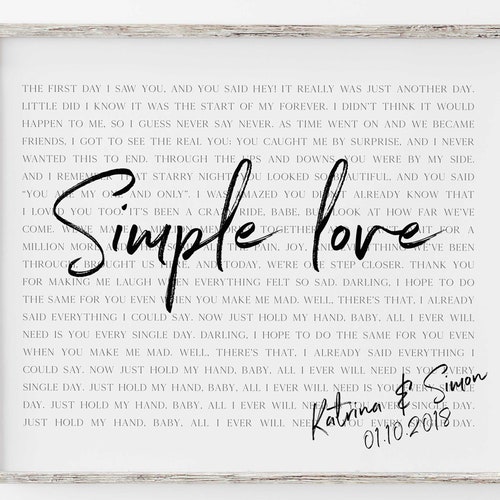 THE FIRST DAY I SAW YOU, AND YOU SAID HEY! IT REALLY WAS JUST ANOTHER DAY.
LITTLE DID I KNOW IT WAS THE START OF MY FOREVER. I DIDN'T THINK IT WOULD
HAPPEN TO ME, SO I GUESS NEVER SAY NEVER. AS TIME WENT ON AND WE BECAME
FRIENDS, I GOT TO SEE THE REAL YOU: YOU CAUGHT ME BY SURPRISE, AND I NEVER
WANTED THIS TO END. THROUGH THE UPS AND DOWNS, YOU WERE BY MY SIDE,
AND I REMEMBER THAT STARRY NIGHT, YOU LOOKED SO BEAUTIFUL, AND YOU SAID
"YOU ARE MY ONE AND ONLY". I WAS AMAZED YOU DIDN'T ALREADY KNOW THAT
I LOVE YOU TOO. IT'S BEEN A CRAZY RIDE, BABE, BUT LOOK AT HOW FAR WE'VE
COME. WE'VE MA TOGETHER IT FOR A
MILLION MORE TAIN. JOY, WE'VE BEEN
THROUGH BROUGHT US HERE, AND TODAY, WE'RE ONE STEP CLOSER. THANK YOU
FOR MAKING ME LAUGH WHEN EVERYTHING FELT SO SAD. DARLING, I HOPE TO DO
THE SAME FOR YOU EVEN WHEN YOU MAKE ME MAD. WELL, THERE'S THAT, I ALREADY
SAID EVERYTHING I COULD SAY. NOW JUST HOLD MY HAND, BABY, ALL I EVER WILL
NEED IS YOU EVERY SINGLE DAY. DARLING, I HOPE TO DO THE SAME FOR YOU EVEN
WHEN YOU MAKE ME MAD. WELL, THERE'S THAT, I ALREADY SAID EVERYTHING I
COULD SAY. NOW JUST HOLD MY HAND, BABY, ALL I EVER WILL NEED IS YOU EVERY
SINGLE DAY. JUST HOLD MY HAND, BABY, ALL I EVER WILL NEED IS YOU EVERY SINGLE
DAY. JUST HOLD MY HAND, BABY, ALL I EVER WILL NEED IS YOU EVERY SINGLE DAY.
JUST HOLD MY HAND, BABY, ALL I EVER WILL NEED IS YOU EVERY SINGLE DAY.
Simple love
Katrina & Simon
01.10.2018